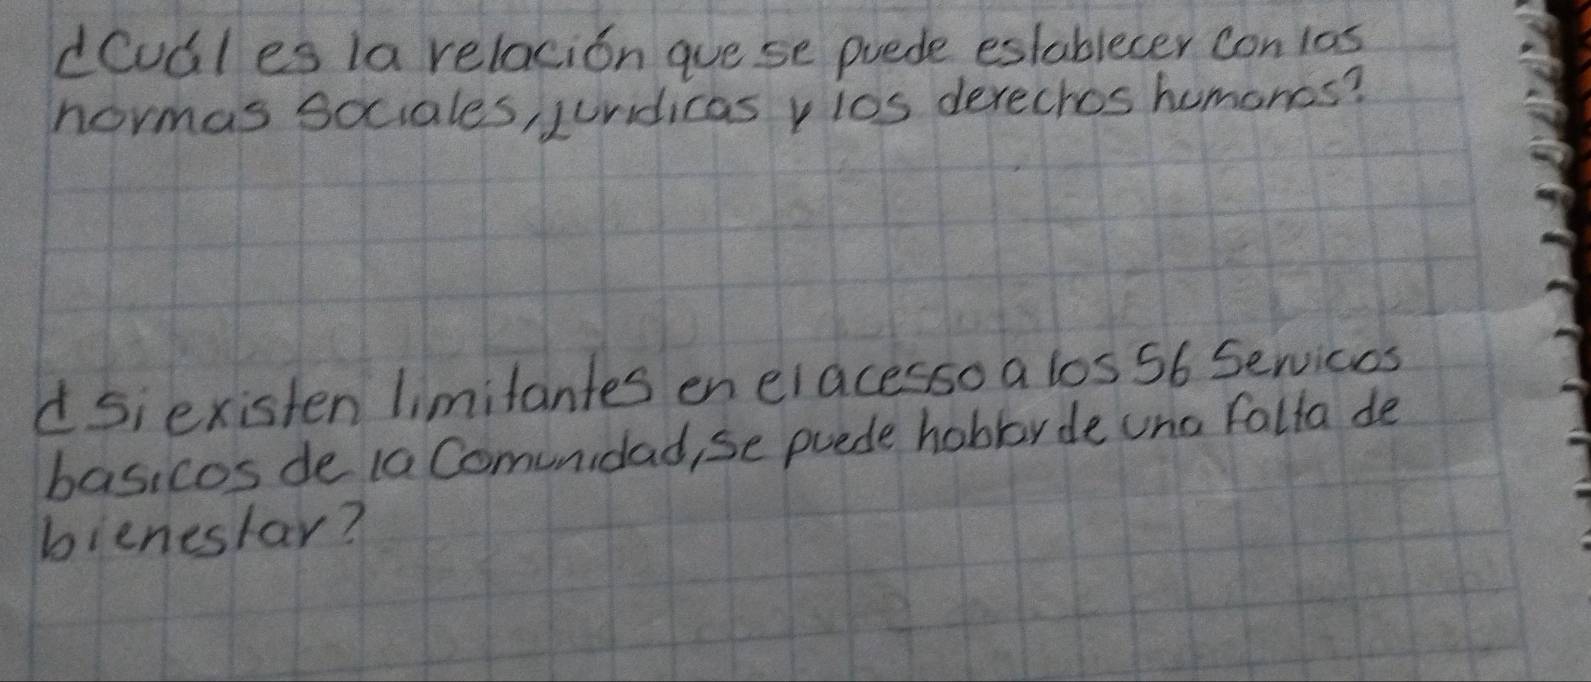 ¿Cuál es la relación que se puede establecer con las
normas sociales, juridicas y los derechos humanos?
¿si existen limitantes en el acesso a los 56 Servicos
basicos de la Comunidad, se puede hablar de una falta de
bienestar?